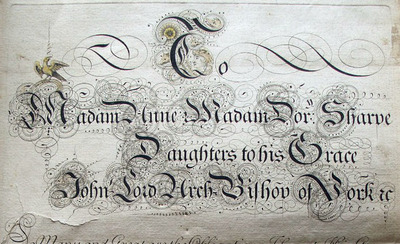 To
Madam Anne & Madam Dor: Sharpe
Daughters to his Grace
John Lord Arch-Bishop of York &c